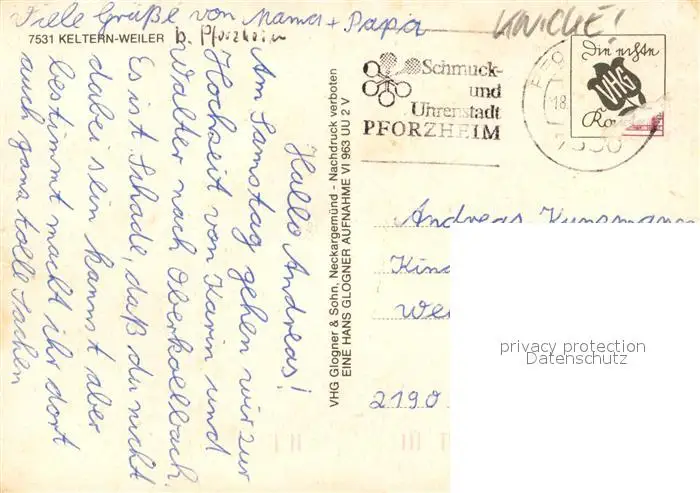 Viele Grüße von Mama + Papa
7531 KELTERN-WEILER b. Pforzheim
KNICKE!
Hallo Andreas!
Am Samstag gehen wir zur
Hochzeit von Karin und
Walter nach Oberkollbach.
Es ist Schade, daß du nicht
dabei sein kannst aber
bestimmt macht ihr dort
auch ganz tolle Sachen
VHG Glogner & Sohn, Neckargemünd - Nachdruck verboten
EINE HANS GLOGNER AUFNAHME VI 963 UU 2 V
Schmuck-
und
Uhrenstadt
PFORZHEIM
18.
7530
Die echte
VHG
Andreas Kunzmann
Kin
We
2190
privacy protection
Datenschutz